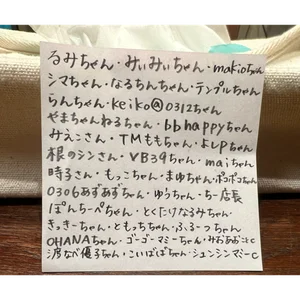 るみちゃん・みぃみぃちゃん・makioちゃん
シマちゃん・なるちんちゃん・テンプルちゃん
らんちゃん・keiko@0312ちゃん
やまちゃんねるちゃん・bbhappyちゃん
みえこさん・TMももちゃん・よしPちゃん
根のシンさん・VB39ちゃん・maiちゃん
時るさん・もっこちゃん・まゆちゃん・ポコポコちゃん
0306あずあずちゃん・ゆうちゃん・ちー店長
ぽんちーぺちゃん・とくだけなるみちゃん
きっきーちゃん・ともっちちゃん・ふるーつちゃん
OHANAちゃん・ゴーゴーマミーちゃん・みおあおことC
波なべ優子ちゃん・こいばばちゃん・シュンシンマミーC